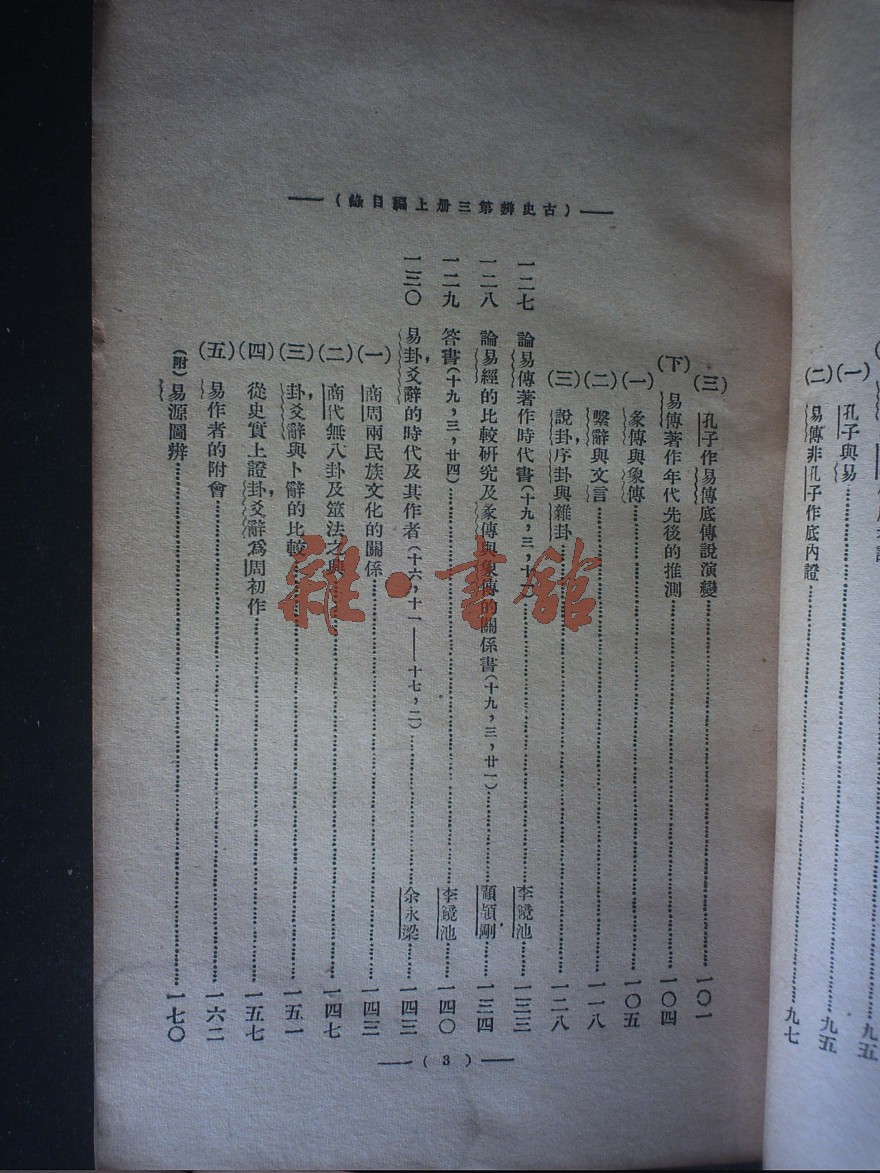 （古史辨第三册上編目錄）
（三）孔子作易傳底傳說演變 一〇一
（下）易傳著作年代先後的推測 一〇四
（一）彖傳與象傳 一〇五
（二）繫辭與文言 一一八
（三）說卦，序卦與雜卦 一二八
一二七 論易傳著作時代書（十九，三，十 李鏡池 一三三
一二八 論易經的比較研究及彖傳與象傳的關係書（十九，三，廿一） 顧頡剛 一三四
一二九 答書（十九，三，廿四） 李鏡池 一四〇
一三〇 易卦，爻辭的時代及其作者（十六，十一——十七，二） 余永梁 一四三
（一）商周兩民族文化的關係 一四三
（二）商代無八卦及筮法之興 一四七
（三）卦，爻辭與卜辭的比較 一五一
（四）從史實上證卦，爻辭爲周初作 一五七
（五）易作者的附會 一六二
（附）易源圖辨 一七〇
（3）
九五
（一）孔子與易 九五
（二）易傳非孔子作底內證 九七
雜·書館